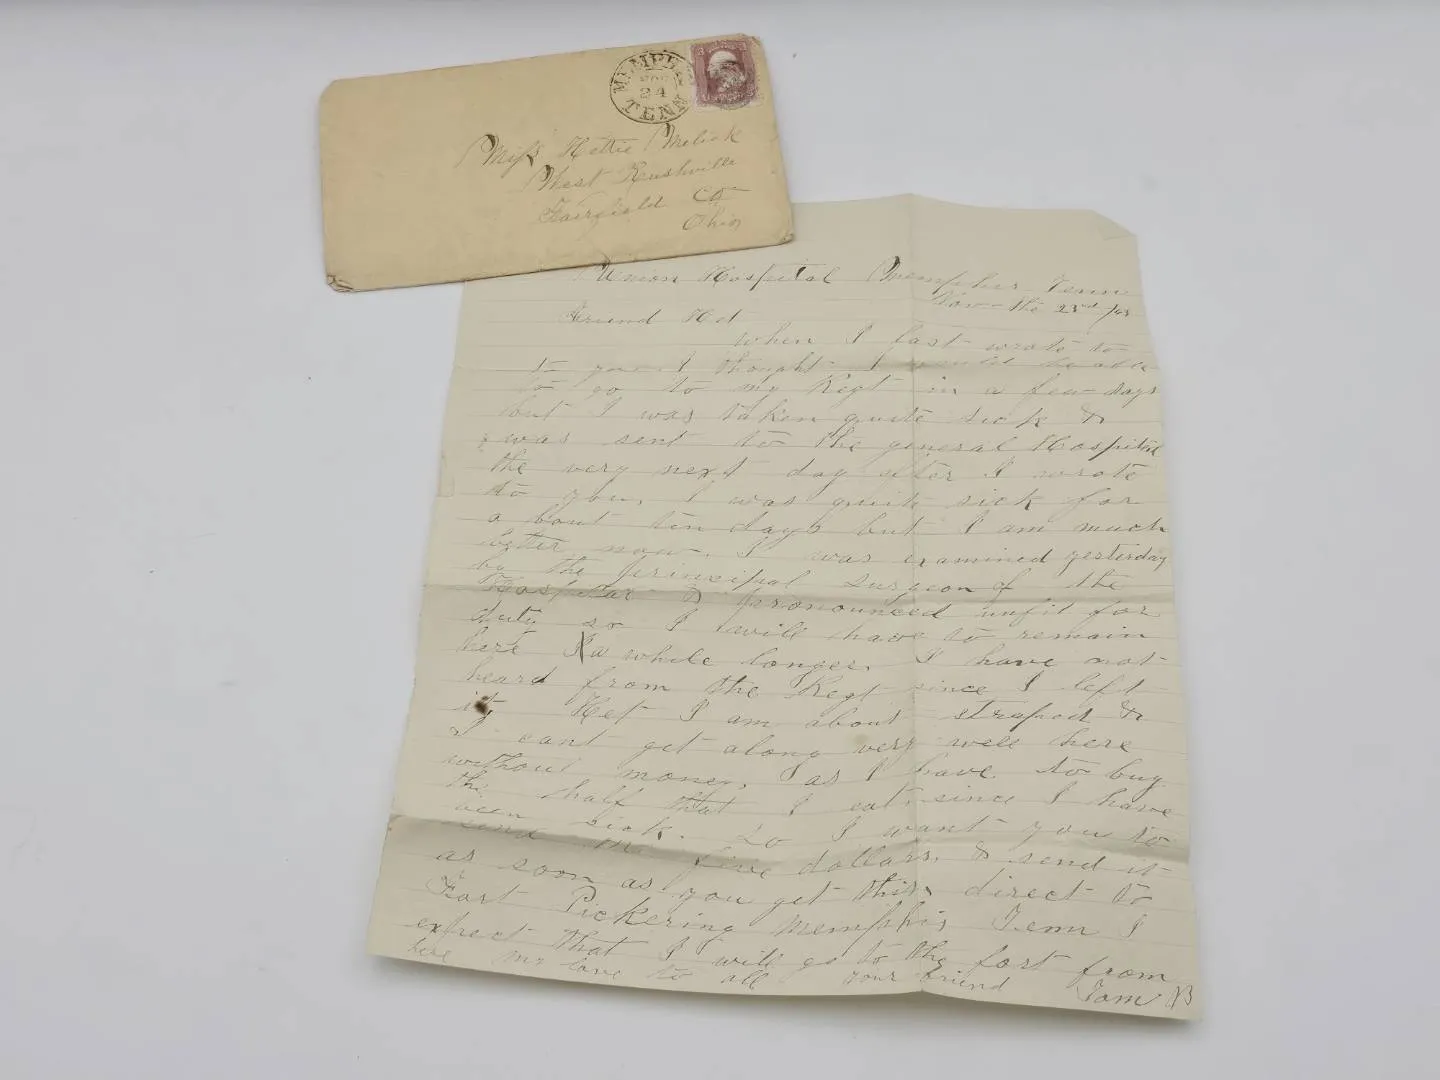 MEMPHIS
NOV
24
TENN
Miss Hettie Melick
West Rushville
Fairfield Co
Ohio
Union Hospital Memphis Tenn
Nov the 23rd /63
Friend Het
when I last wrote to
to you I thought I would be able
to go to my Regt in a few days
but I was taken quite sick &
was sent to the general Hospital
the very next day after I wrote
to you, I was quite sick for
a bout ten days but I am much
better now. I was examined yesterday
by the principal surgeon of the
Hospital & pronounced unfit for
duty so I will have to remain
here a while longer. I have not
heard from the Regt since I left
it, Het I am about straped &
I cant get along very well here
without money, as I have to buy
the half that I eat since I have
been sick. So I want you to
send me five dollars, & send it
as soon as you get this, direct to
Fort Pickering Memphis Tenn I
expect that I will go to the fort from
here my love to all your friend Tom B